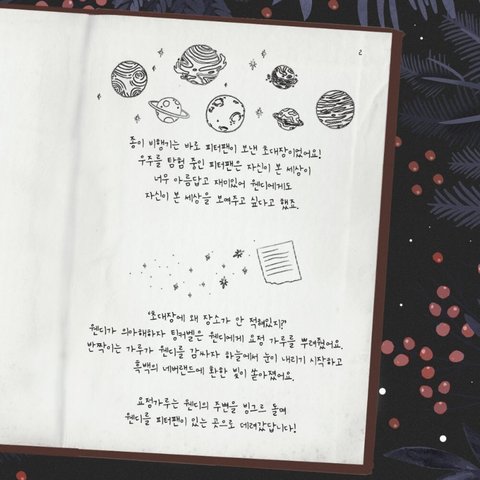 2
종이 비행기는 바로 피터팬이 보낸 초대장이었어요!
우주를 탐험 중인 피터팬은 자신이 본 세상이
너무 아름답고 재미있어 웬디에게도
자신이 본 세상을 보여주고 싶다고 했죠.
'초대장에 왜 장소가 안 적혀있지?'
웬디가 의아해하자 팅커벨은 웬디에게 요정 가루를 뿌려줬어요.
반짝이는 가루가 웬디를 감싸자 하늘에서 눈이 내리기 시작하고
흑백의 네버랜드에 환한 빛이 쏟아졌어요.
요정가루는 웬디의 주변을 빙그르 돌며
웬디를 피터팬이 있는 곳으로 데려갔답니다!